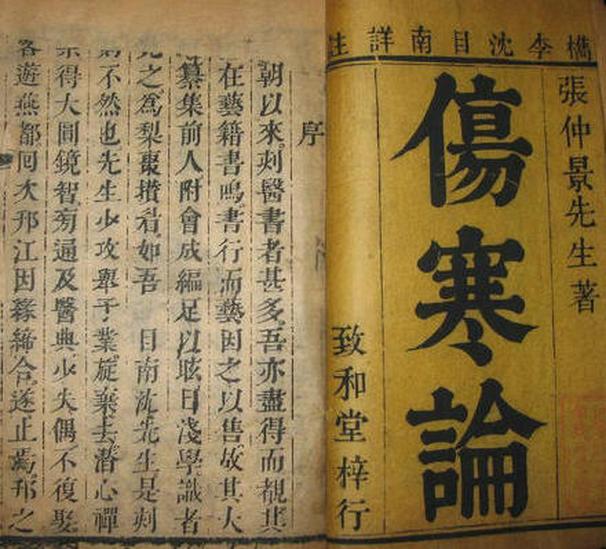 檇李沈目南詳註
張仲景先生著
傷寒論
致和堂梓行
序
朝以來刻醫書者甚多吾亦盡得而觀其
在藝籍書鳴書行而藝因之以售故其大
纂集前人附會成編足以眩目淺學識者
見之為梨棗攢眉如吾 目南沈先生是刻
則不然也先生少攻舉子業旋棄去潛心禪
宗得大圓鏡智旁通及醫典少失偶不復娶
客遊燕都回次邗江因緣締合遂止焉邗之